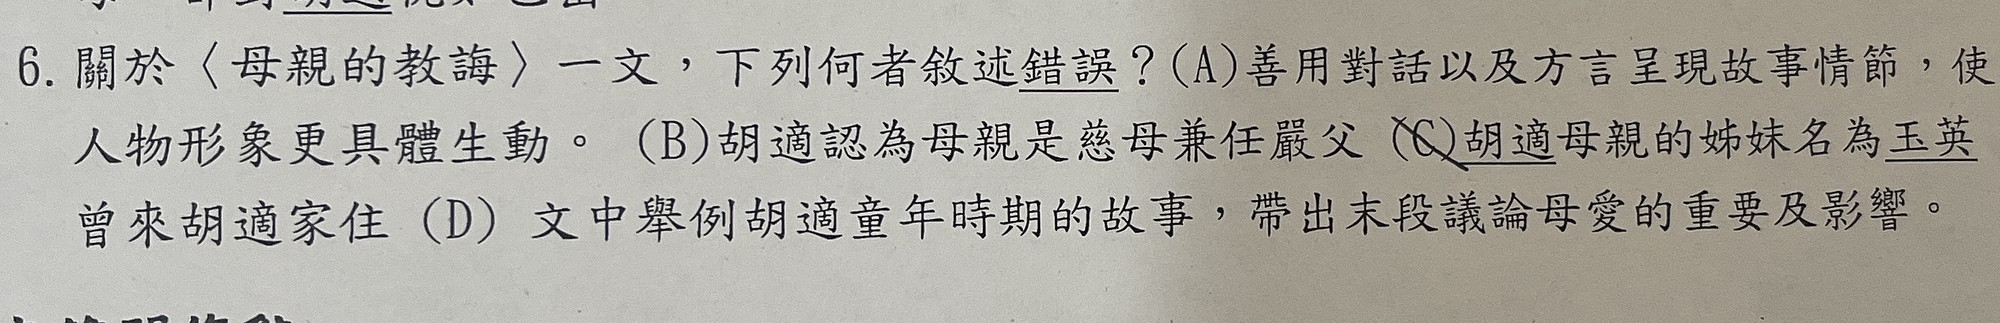 6. 關於〈母親的教誨〉一文，下列何者敘述錯誤？(A)善用對話以及方言呈現故事情節，使
人物形象更具體生動。 (B)胡適認為母親是慈母兼任嚴父 (C)胡適母親的姊妹名為玉英
曾來胡適家住 (D) 文中舉例胡適童年時期的故事，帶出末段議論母愛的重要及影響。